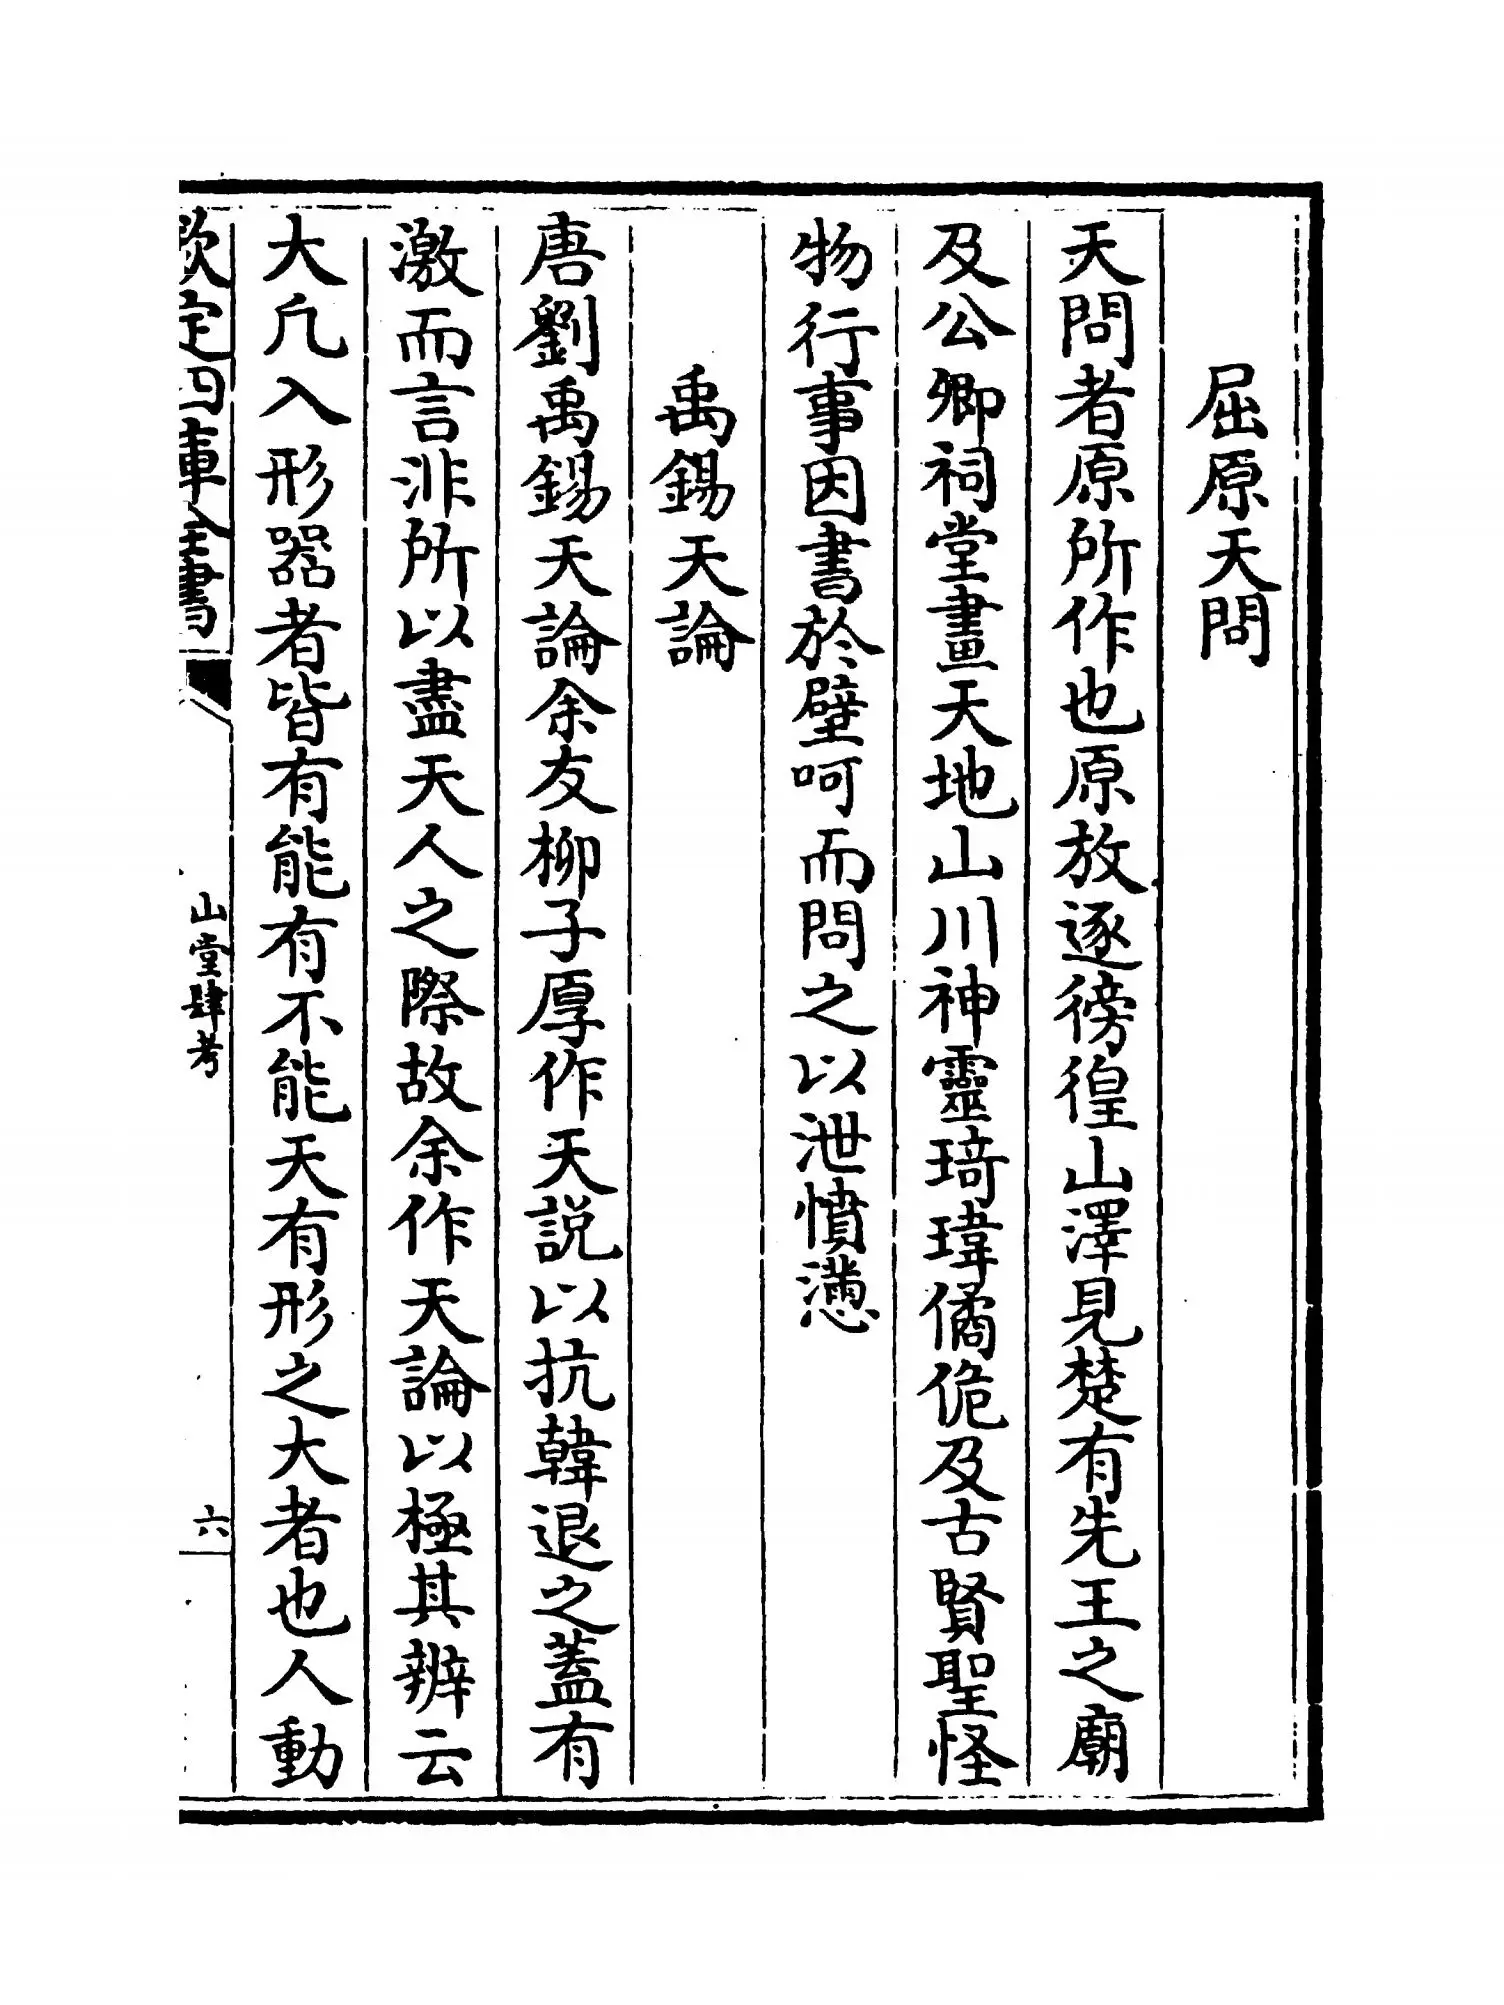 屈原天問
天問者原所作也原放逐徬徨山澤見楚有先王之廟
及公卿祠堂畫天地山川神靈琦瑋僪佹及古賢聖怪
物行事因書於壁呵而問之以泄憤懣
禹錫天論
唐劉禹錫天論余友柳子厚作天説以抗韓退之蓋有
激而言非所以盡天人之際故余作天論以極其辨云
大凡入形器者皆有能有不能天有形之大者也人動
欽定四庫全書
山堂肆考
六